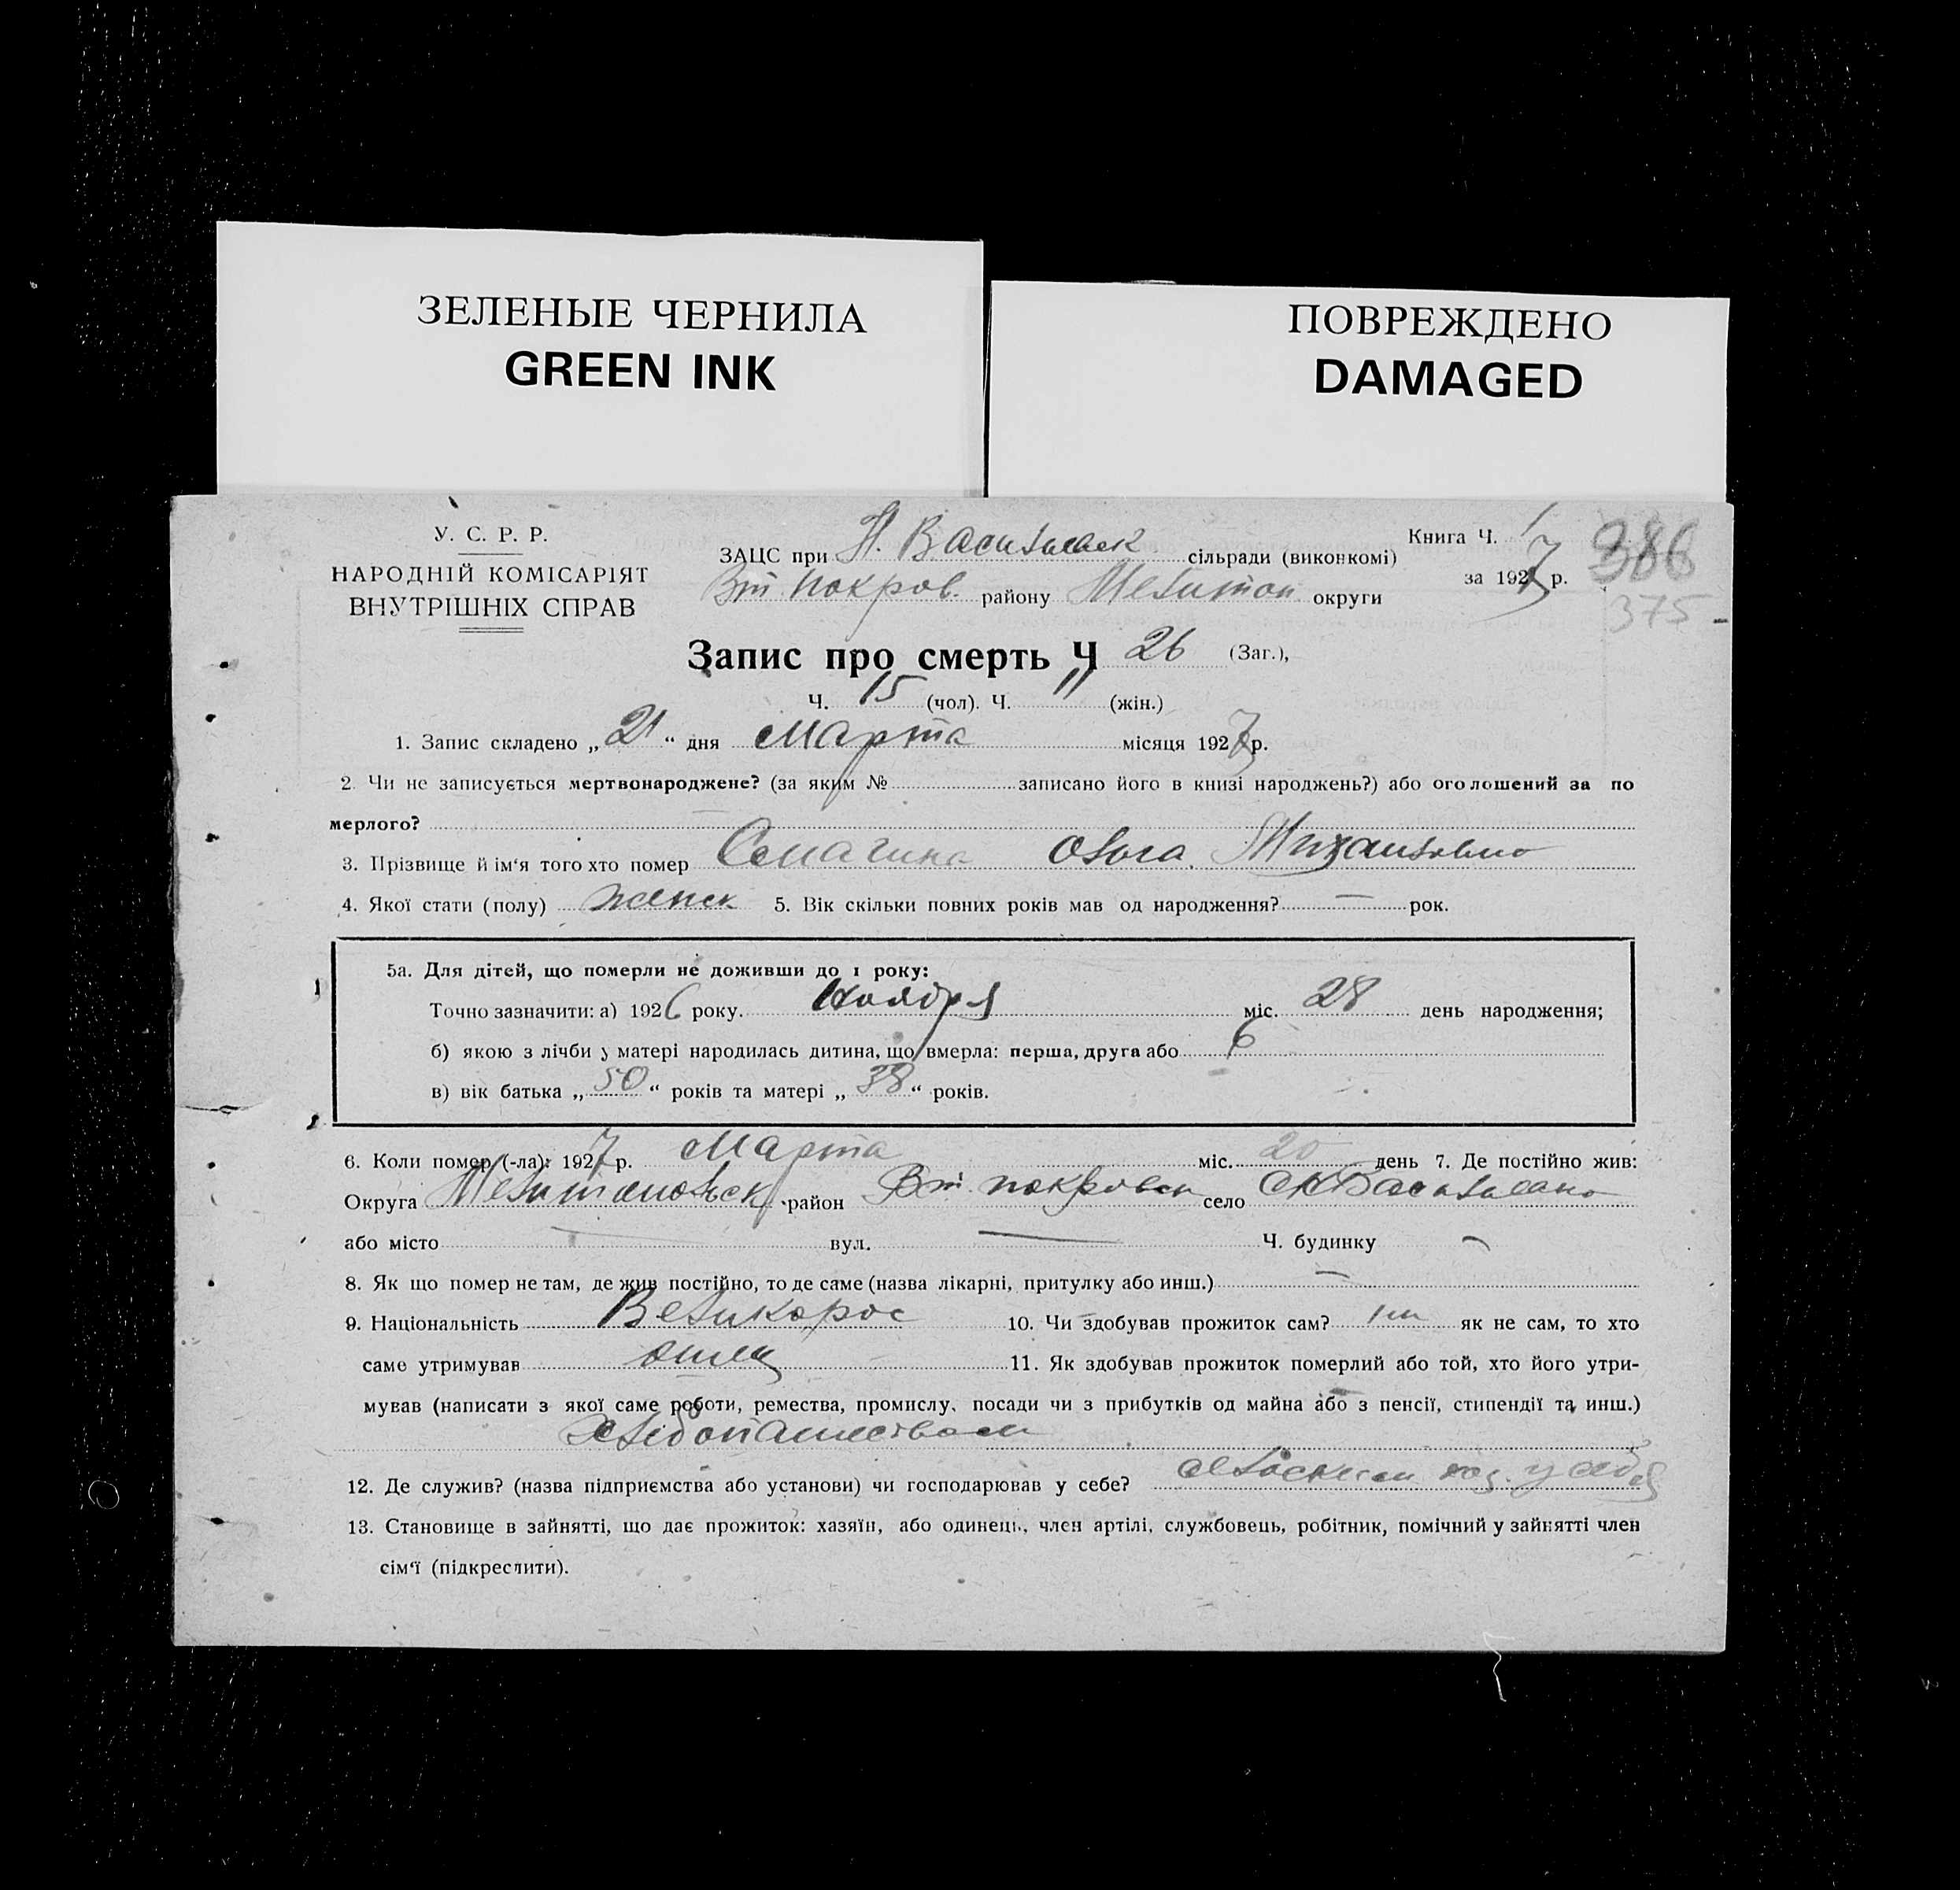 ЗЕЛЕНЫЕ ЧЕРНИЛА
GREEN INK
ПОВРЕЖДЕНО
DAMAGED
У. С. Р. Р.
НАРОДНІЙ КОМІСАРІЯТ
ВНУТРІШНІХ СПРАВ
ЗАЦС при Н. Васильевск сільради (виконкомі)
Вт. Покров. району Мелитоп. округи
Книга Ч. 1
за 1927 р.
386
375
Запис про смерть Ч 26 (Заг.),
Ч. 15 (чол). Ч. 11 (жін.)
1. Запис складено „21“ дня Марта місяця 1927 р.
2. Чи не записується мертвонароджене? (за яким № записано його в книзі народжень?) або оголошений за по
мерлого?
3. Прізвище й ім‘я того хто помер Смагина Ольга Михайловно
4. Якої стати (полу) женск 5. Вік скільки повних років мав од народження? — рок.
5а. Для дітей, що померли не доживши до 1 року:
Точно зазначити: а) 1926 року. Ноября міс. 28 день народження;
б) якою з лічби у матері народилась дитина, що вмерла: перша, друга або 6
в) вік батька „50“ років та матері „38“ років.
6. Коли помер (-ла): 1927 р. Марта міс. 20 день 7. Де постійно жив:
Округа Мелитопольск район Вт. покровск село
або місто — вул. — Ч. будинку —
8. Як що помер не там, де жив постійно, то де саме (назва лікарні, притулку або инш.) —
9. Національність Великорос 10. Чи здобував прожиток сам? як не сам, то хто
саме утримував отец 11. Як здобував прожиток померлий або той, хто його утри-
мував (написати з якої саме роботи, ремества, промислу, посади чи з прибутків од майна або з пенсії, стипендії та инш.)
Хлебопашеством
12. Де служив? (назва підприємства або установи) чи господарював у себе? сельским хоз. у себя
13. Становище в зайнятті, що дає прожиток: хазяїн, або одинець, член артілі, службовець, робітник, помічний у зайнятті член
сім‘ї (підкреслити).